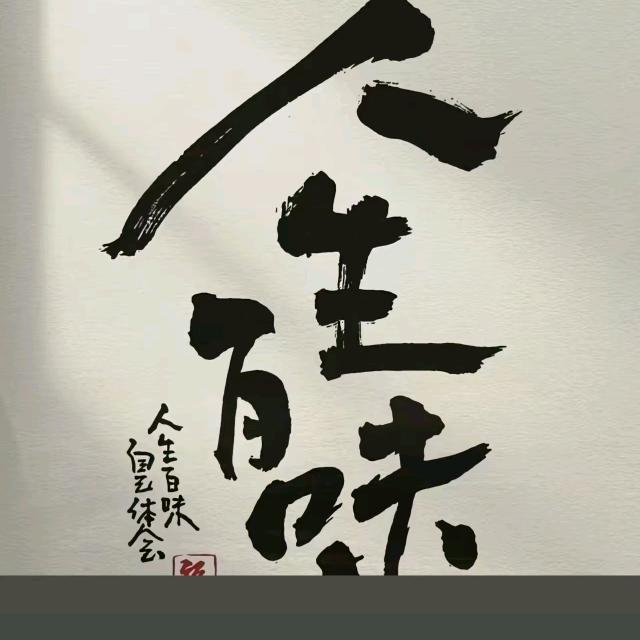 人生百味
人生百味
自己体会